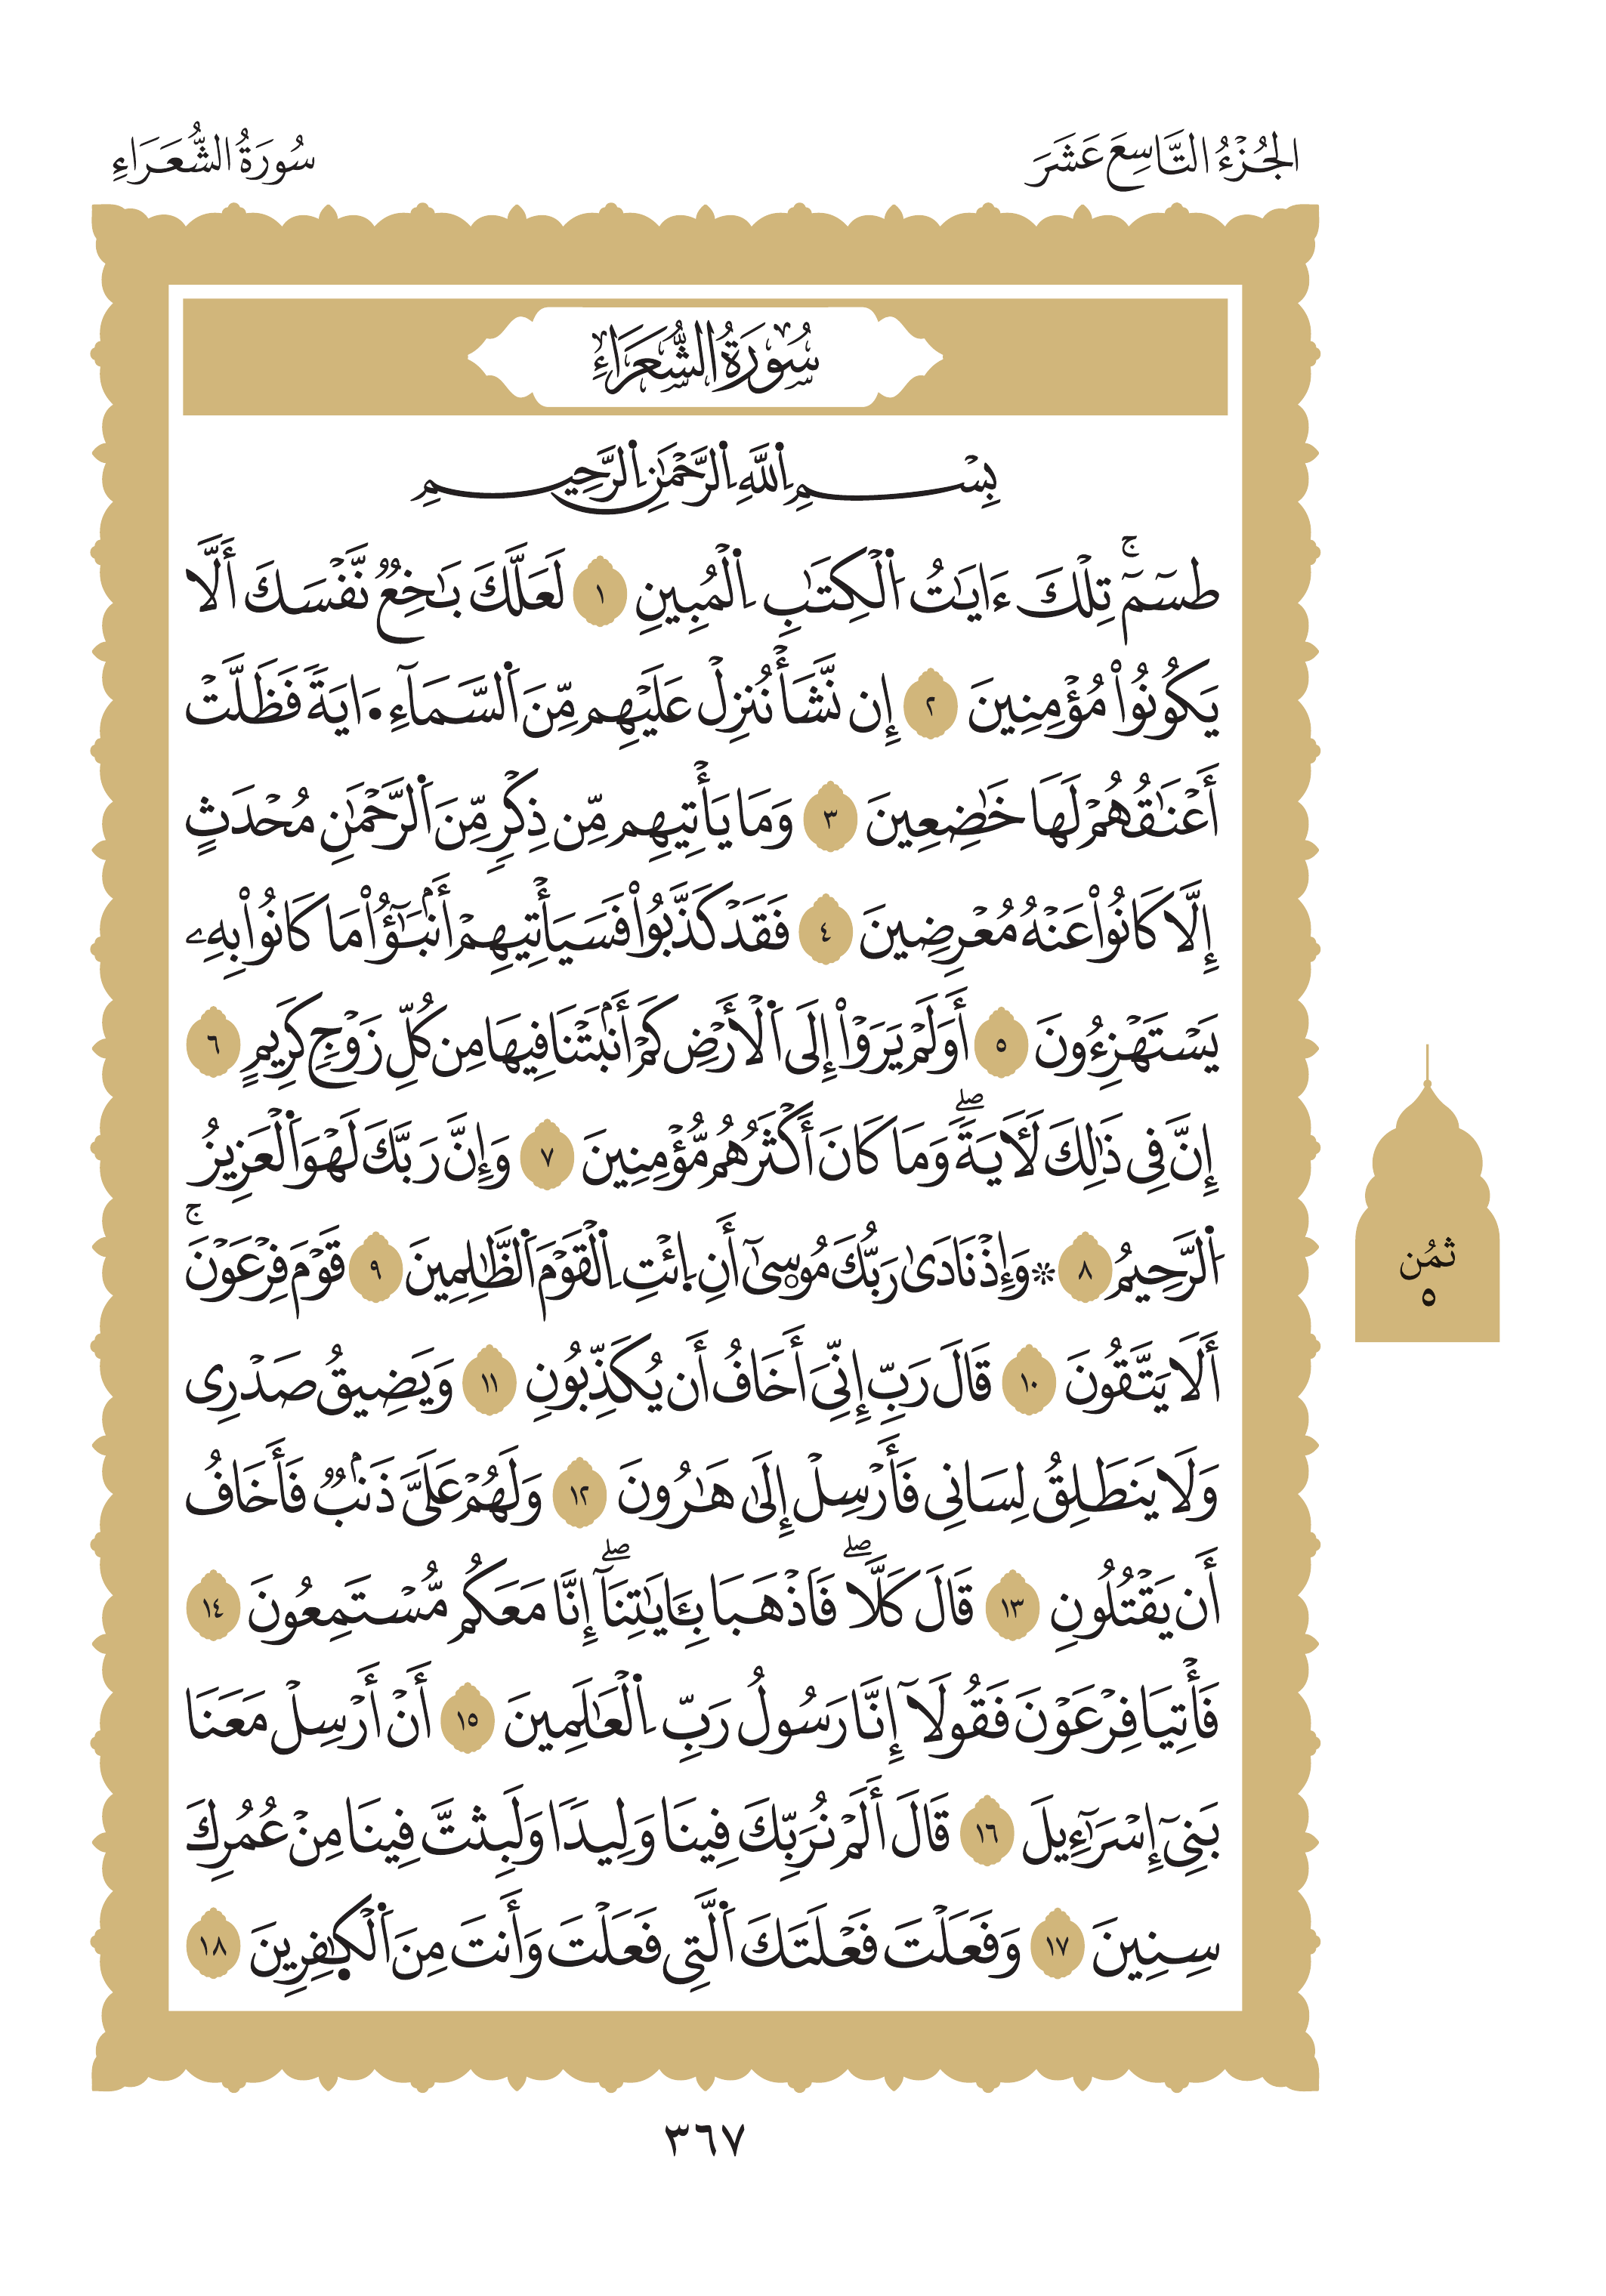 الجُزْءُ التَّاسِعَ عَشَرَ
سُورَةُ الشُّعَرَاءِ
سُورَةُ الشُّعَرَاءِ
بِسْمِ اِ۬للَّهِ اِ۬لرَّحْمَٰنِ اِ۬لرَّحِيمِ
طسٓمٓۚ تِلْكَ ءَايَٰتُ اُ۬لْكِتَٰبِ اِ۬لْمُبِينِ ١ لَعَلَّكَ بَٰخِعٞ نَّفْسَكَ أَلَّا
يَكُونُواْ مُؤْمِنِينَ ٢ إِن نَّشَأْ نُنزِلْ عَلَيْهِم مِّنَ اَ۬لسَّمَآءِ ا۬يَةٗ فَظَلَّتْ
أَعْنَٰقُهُمْ لَهَا خَٰضِعِينَ ٣ وَمَا يَأْتِيهِم مِّن ذِكْرٖ مِّنَ اَ۬لرَّحْمَٰنِ مُحْدَثٍ
إِلَّا كَانُواْ عَنْهُ مُعْرِضِينَ ٤ فَقَدْ كَذَّبُواْ فَسَيَأْتِيهِمْ أَنۢبَٰٓؤُاْ مَا كَانُواْ بِهِۦ
يَسْتَهْزِءُونَ ٥ أَوَلَمْ يَرَوْاْ إِلَى اَ۬لْأَرْضِ كَمْ أَنۢبَتْنَا فِيهَا مِن كُلِّ زَوْجٖ كَرِيمٍ ٦
إِنَّ فِي ذَٰلِكَ لَأٓيَةٗۖ وَمَا كَانَ أَكْثَرُهُم مُّؤْمِنِينَ ٧ وَإِنَّ رَبَّكَ لَهْوَ اَ۬لْعَزِيزُ
اُ۬لرَّحِيمُ ٨ ۞وَإِذْ نَادَىٰ رَبُّكَ مُوسِىٰٓ أَنِ اِ۪ئْتِ اِ۬لْقَوْمَ اَ۬لظَّٰلِمِينَ ٩ قَوْمَ فِرْعَوْنَۚ
أَلَا يَتَّقُونَ ١٠ قَالَ رَبِّ إِنِّيَ أَخَافُ أَن يُكَذِّبُونِ ١١ وَيَضِيقُ صَدْرِي
وَلَا يَنطَلِقُ لِسَانِي فَأَرْسِلْ إِلَىٰ هَٰرُونَ ١٢ وَلَهُمْ عَلَيَّ ذَنۢبٞ فَأَخَافُ
أَن يَقْتُلُونِ ١٣ قَالَ كَلَّاۖ فَاَذْهَبَا بِـَٔايَٰتِنَآۖ إِنَّا مَعَكُم مُّسْتَمِعُونَ ١٤
فَأْتِيَا فِرْعَوْنَ فَقُولَآ إِنَّا رَسُولُ رَبِّ اِ۬لْعَٰلَمِينَ ١٥ أَنْ أَرْسِلْ مَعَنَا
بَنِيٓ إِسْرَٰٓءِيلَ ١٦ قَالَ أَلَمْ نُرَبِّكَ فِينَا وَلِيدٗا وَلَبِثتَّ فِينَا مِنْ عُمُرِكَ
سِنِينَ ١٧ وَفَعَلْتَ فَعْلَتَكَ اَ۬لَّتِي فَعَلْتَ وَأَنتَ مِنَ اَ۬لْكٰ۪فِرِينَ ١٨
ثُمُن
٥
٣٦٧